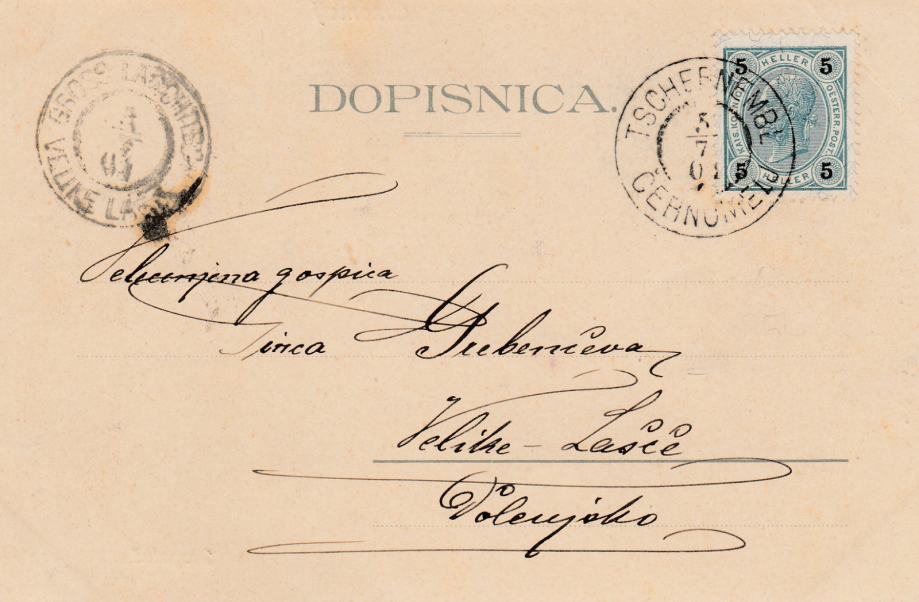 DOPISNICA.
GROSS LASCHITSCH
VELIKE LAŠČE
TSCHERNEMBL
5
7
ČERNOMELJ
5 HELLER 5
KAIS. KÖNIGL. OESTERR. POST.
5 HELLER 5
gospica
Grebenčeva
Velike-Lašče
Dolenjsko